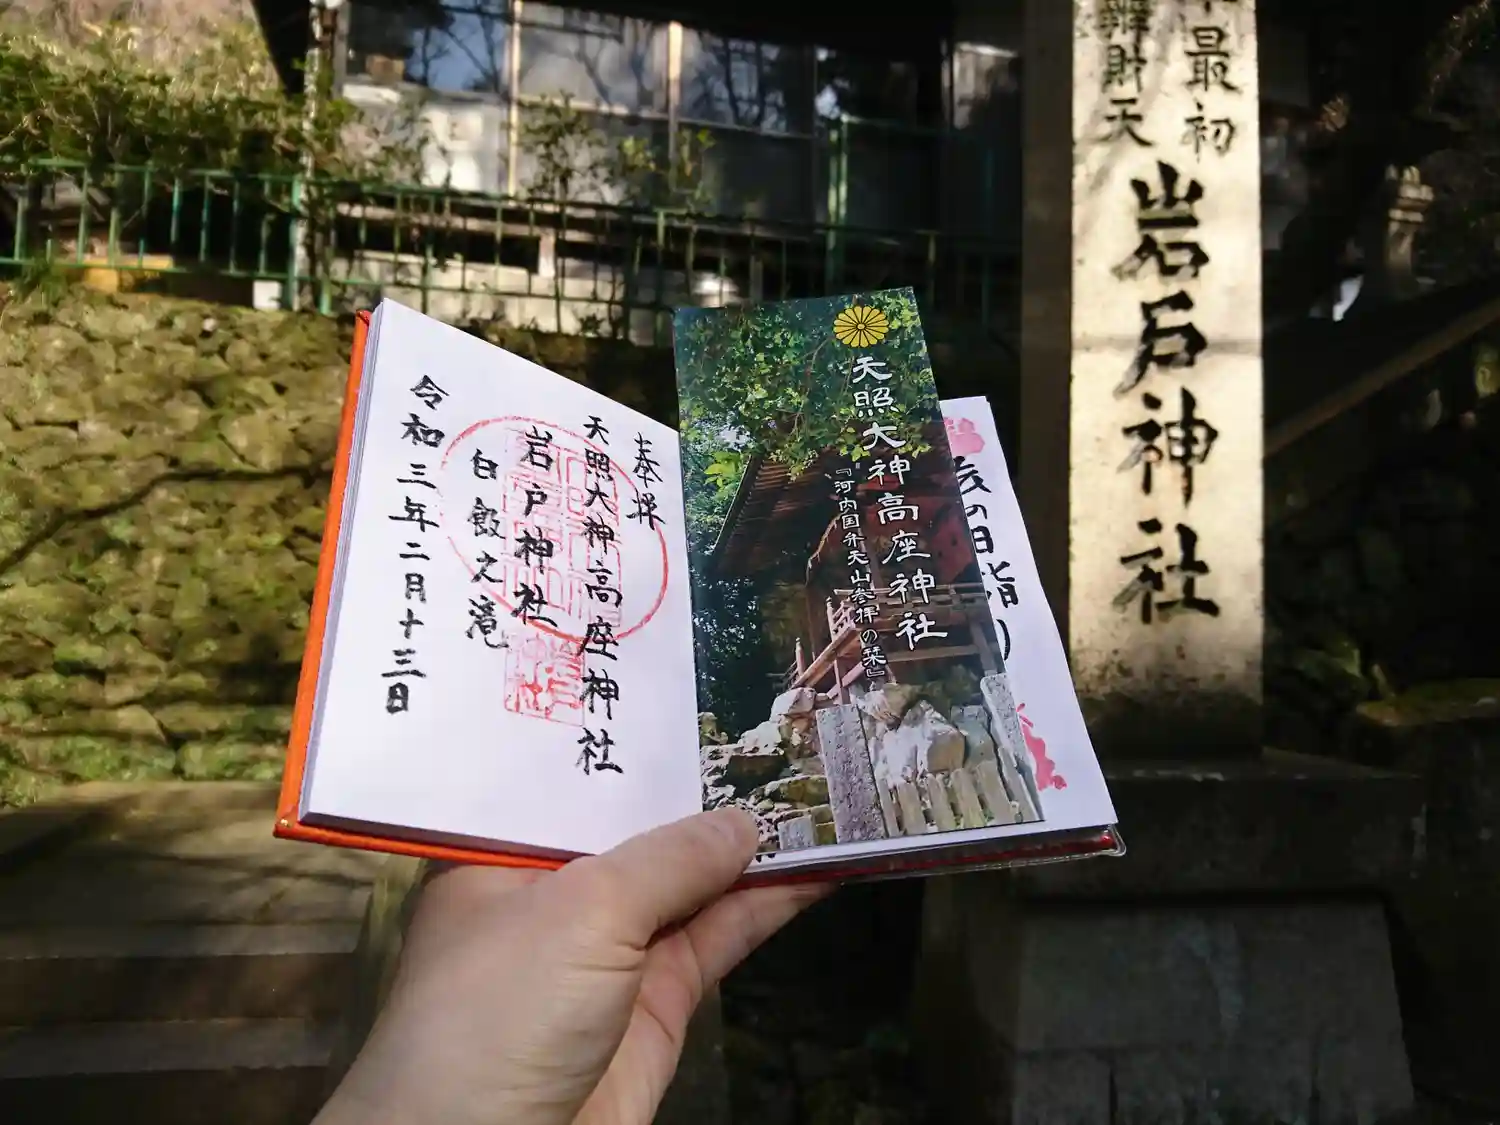 最初
辨財天
岩戸神社
天照大神高座神社
『河内国弁天山参拝の栞』
の日詣り
奉拝
天照大神高座神社
岩戸神社
白飯之滝
令和三年二月十三日